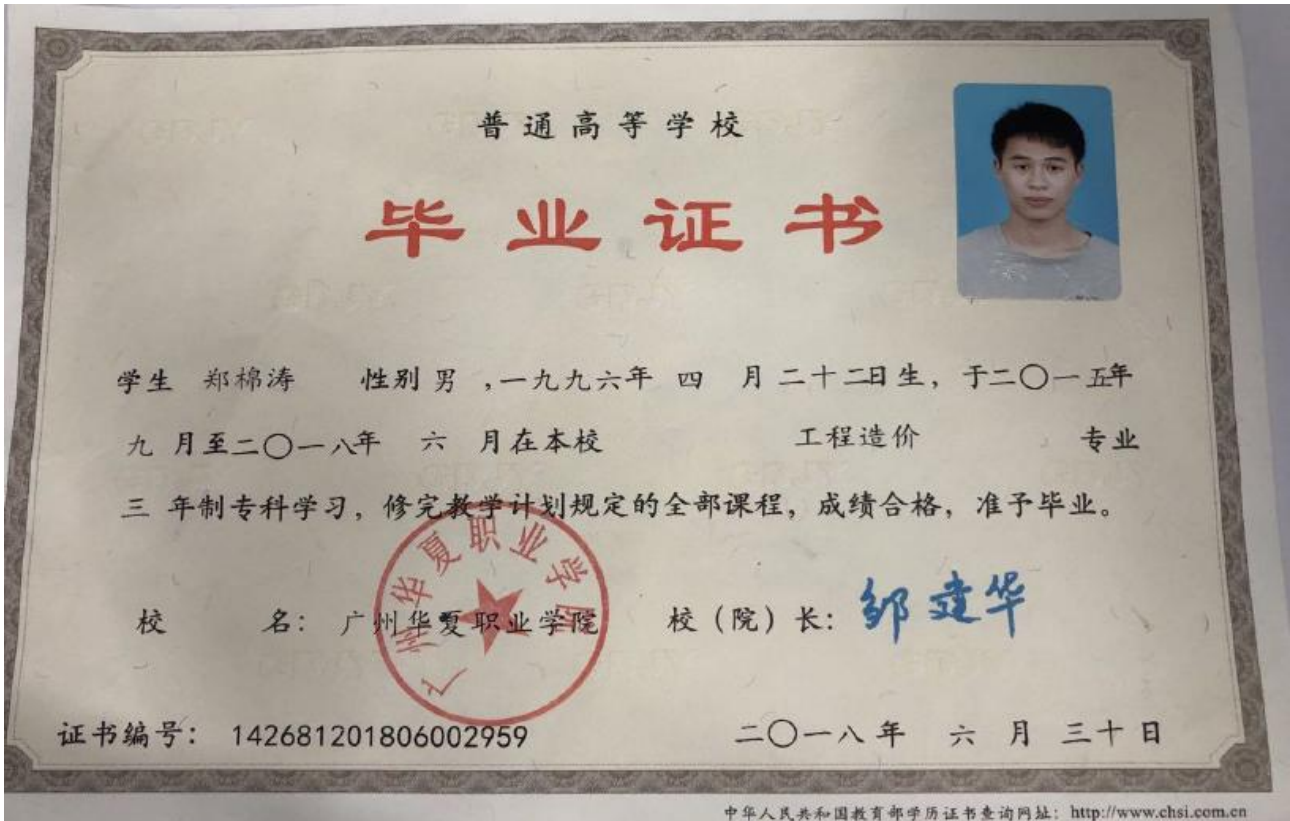 普通高等学校
毕业证书
学生 郑棉涛 性别 男 ,一九九六年 四 月 二十二日生，于二〇一五年
九 月至二〇一八年 六 月在本校 工程造价 专业
三 年制专科学习，修完教学计划规定的全部课程，成绩合格，准予毕业。
广州华夏职业学院
校 名：广州华夏职业学院 校（院）长：邹建华
证书编号：142681201806002959 二〇一八年 六 月 三十日
中华人民共和国教育部学历证书查询网址：http://www.chsi.com.cn